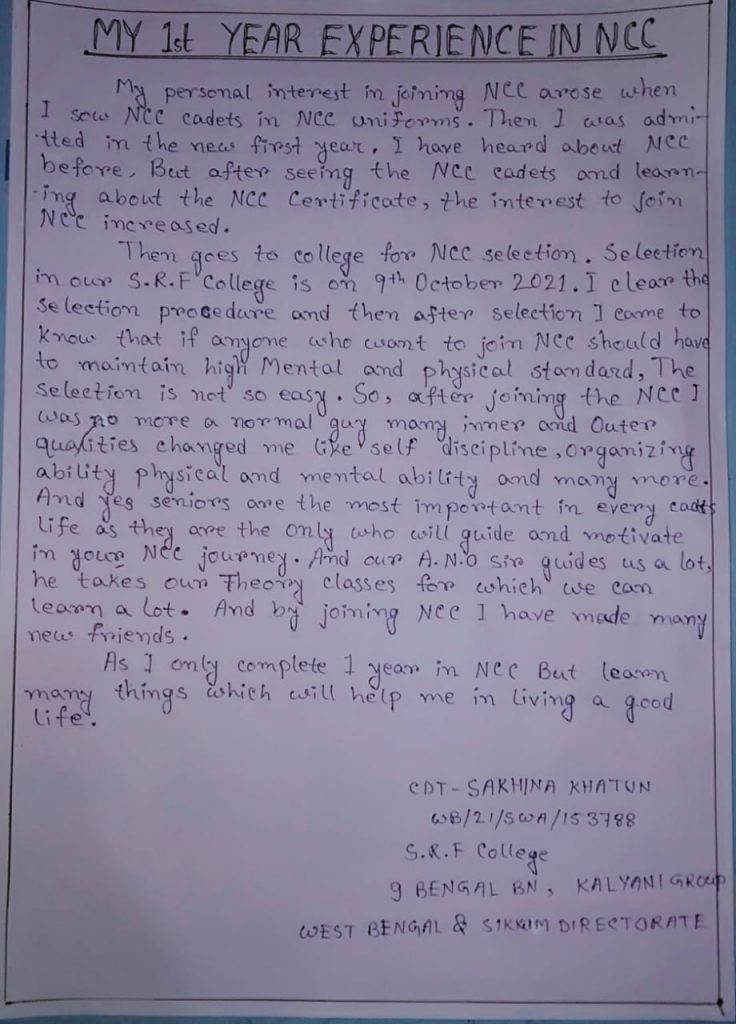 MY 1st YEAR EXPERIENCE IN NCC
My personal interest in joining NCC arose when
I sow NCC cadets in NCC uniforms. Then I was admi-
tted in the new first year. I have heard about NCC
before, But after seeing the NCC cadets and learn-
-ing about the NCC Certificate, the interest to join
NCC increased.
Then goes to college for NCC selection. Selection
in our S.R.F College is on 9th October 2021. I clear the
selection procedure and then after selection I came to
know that if anyone who want to join NCC should have
to maintain high Mental and physical standard, The
selection is not so easy. So, after joining the NCC I
was no more a normal guy many inner and Outer
qualities changed me like self discipline, organizing
ability physical and mental ability and many more.
And yes seniors are the most important in every cadets
life as they are the only who will guide and motivate
in your NCC journey. And our A.N.O sir guides us a lot,
he takes our Theory classes for which we can
learn a lot. And by joining NCC I have made many
new friends.
As I only complete 1 year in NCC But learn
many things which will help me in living a good
life.
CDT - SAKHINA KHATUN
WB/21/SWA/153788
S.R.F College
9 BENGAL BN, KALYANI GROUP
WEST BENGAL & SIKKIM DIRECTORATE